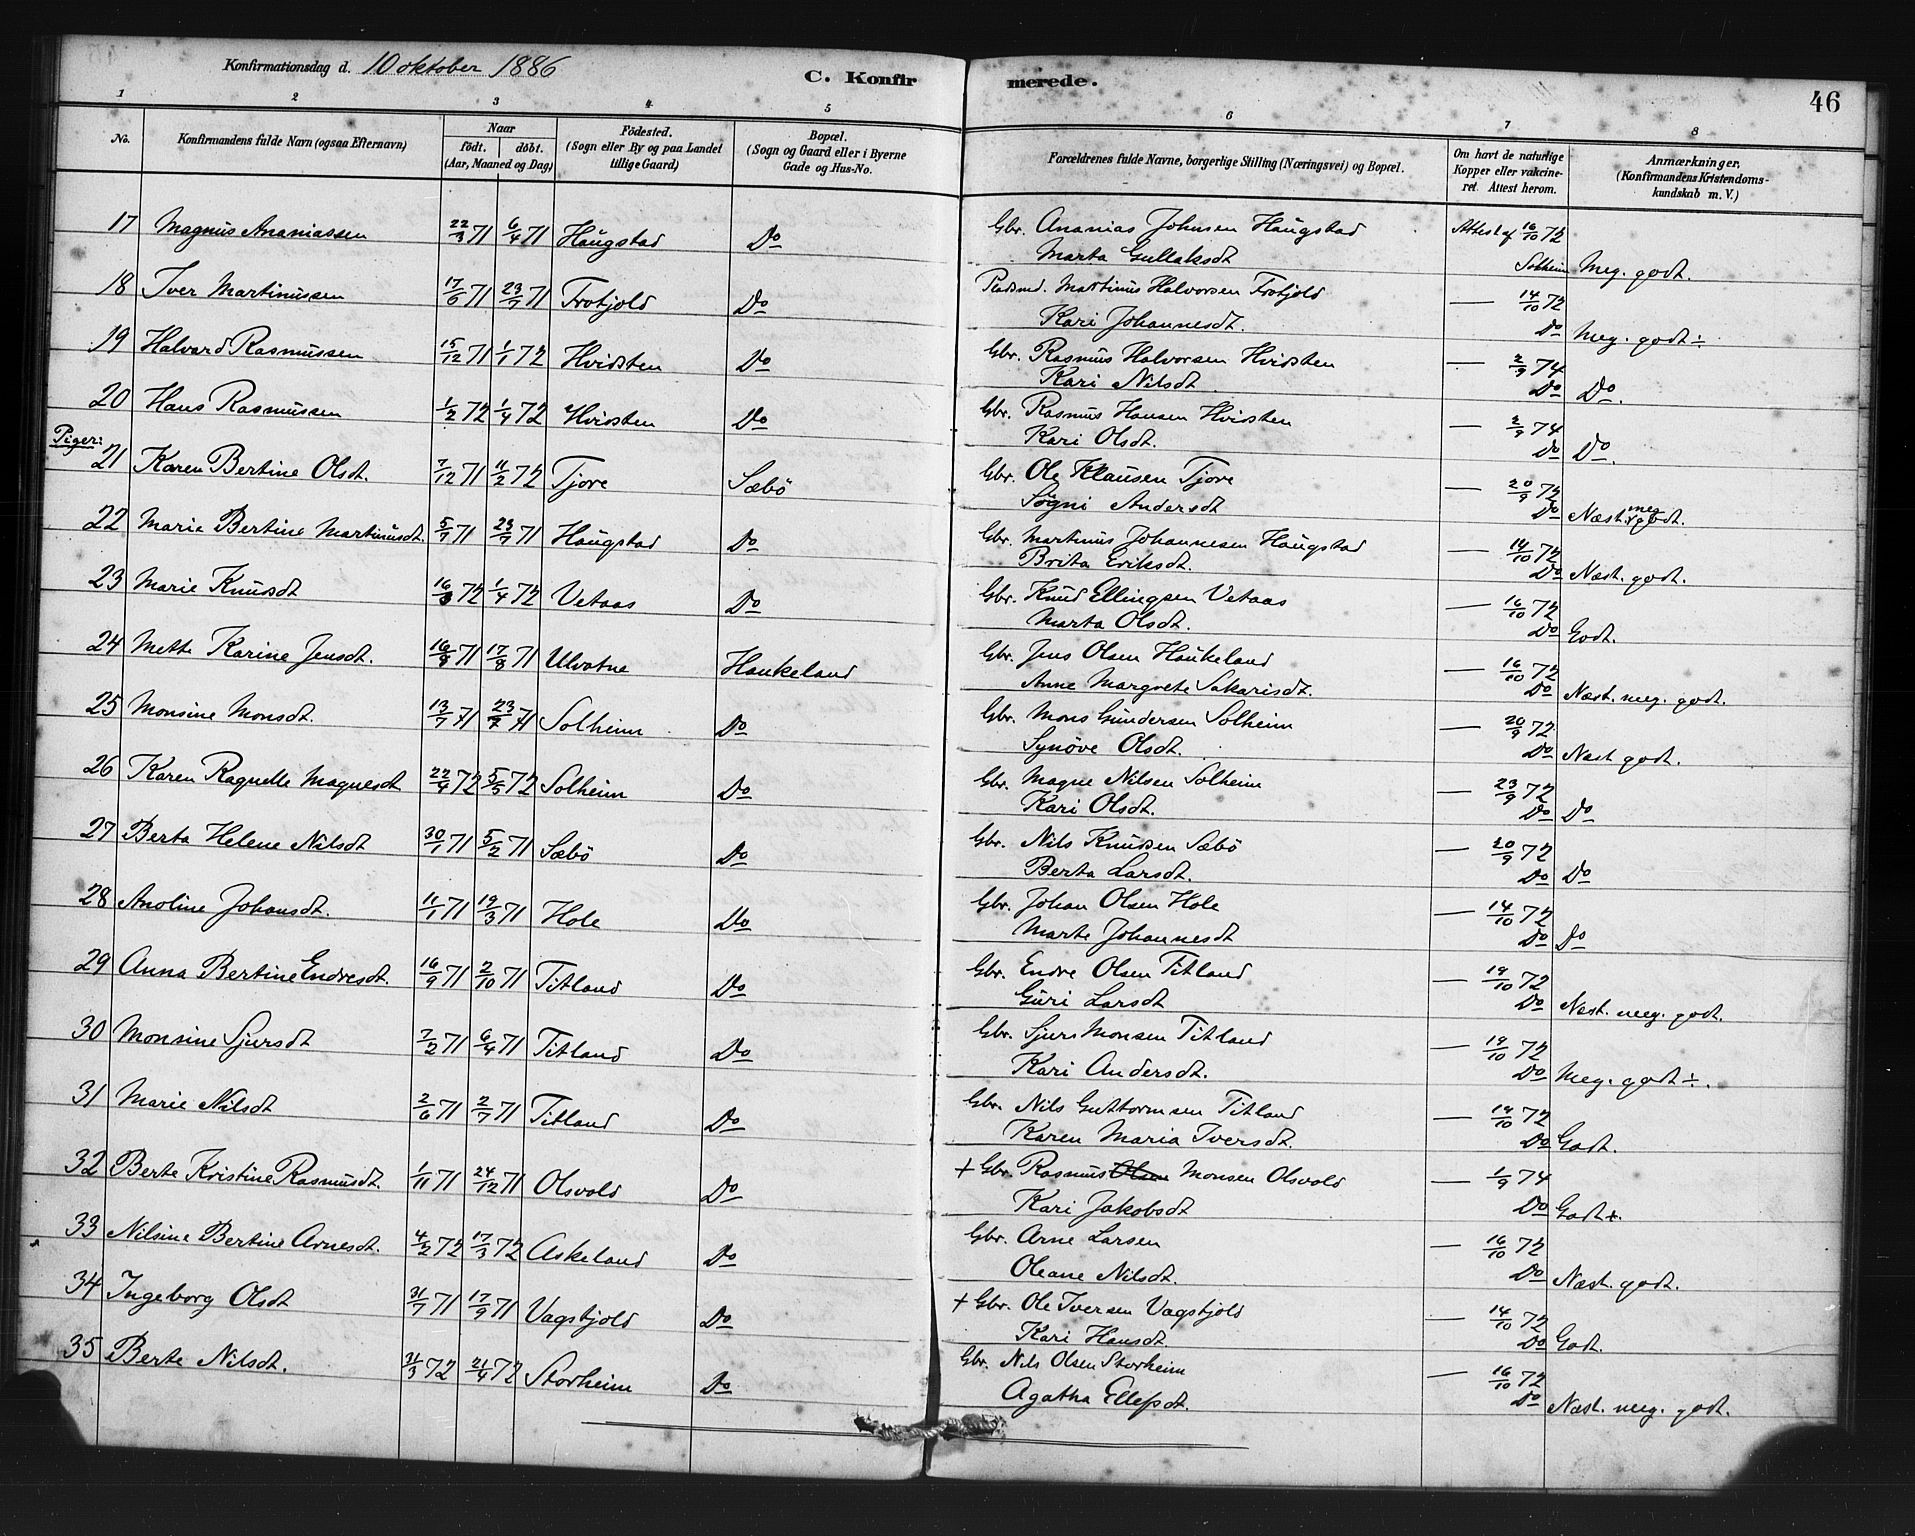 Konfirmationsdag d. 10 oktober 1886
C. Konfirmerede.
46
1 2 3 4 5 6 7 8
No.
Konfirmandens fulde Navn (ogsaa Efternavn)
Naar
født. døbt.
(Aar, Maaned og Dag)
Fødested.
(Sogn eller By og paa Landet
tillige Gaard)
Bopæl.
(Sogn og Gaard eller i Byerne
Gade og Hus-No.
Forældrenes fulde Navne, borgerlige Stilling (Næringsvei) og Bopæl.
Om havt de naturlige
Kopper eller vakcine-
ret. Attest herom.
Anmærkninger,
(Konfirmandens Kristendoms-
kundskab m. V.)
17 Magnus Ananiassen 22/3 71 6/4 71 Haugstad Do Gbr. Ananias Johnsen Haugstad Attest af 16/10 72
Marta Gullaksdt Solheim Meg. godt.
18 Iver Martinussen 17/6 71 23/7 71 Frotjold Do Pladsmd. Martinus Halvorsen Frotjold — 14/10 72
Kari Johannesdt. Do Meg. godt ÷
19 Halvard Rasmussen 15/12 71 1/1 72 Hvidsten Do Gbr. Rasmus Halvorsen Hvidsten — 2/9 74
Kari Nilsdt. Do Do.
20 Hans Rasmussen 1/2 72 1/4 72 Hvidsten Do Gbr. Rasmus Hansen Hvidsten — 2/9 74
Kari Olsdt. Do Do.
Piger:
21 Karen Bertine Olsdt. 7/12 71 11/2 72 Tjore Sæbö Gbr. Ole Klausen Tjore — 20/9 72
Sögni Andersdt Do Næst. meg godt.
22 Marie Bertine Martinusdt. 5/7 71 23/7 71 Haugstad Do Gbr. Martinus Johannesen Haugstad — 14/10 72
Brita Eriksdt. Do Næst. godt.
23 Marie Knudsdt 16/3 72 1/4 72 Vetaas Do Gbr. Knud Ellingsen Vetaas — 16/10 72
Marta Olsdt. Do Godt.
24 Mette Karine Jensdt. 16/8 71 17/8 71 Ulvatne Haukeland Gbr. Jens Olsen Haukeland — 16/10 72
Anne Margrete Sakarisdt. Do Næst. meg. godt.
25 Monsine Monsdt. 13/7 71 23/7 71 Solheim Do Gbr. Mons Gundersen Solheim — 20/9 72
Synöve Olsdt. Do Næst godt.
26 Karen Ragnelle Magnesdt 22/4 72 5/5 72 Solheim Do Gbr. Magne Nilsen Solheim — 23/9 72
Kari Olsdt. Do Do
27 Berta Helene Nilsdt 30/1 71 5/2 71 Sæbö Do Gbr. Nils Knudsen Sæbö — 20/9 72
Berta Larsdt. Do Do
28 Anoline Johansdt. 11/1 71 19/3 71 Hole Do Gbr. Johan Olsen Hole — 14/10 72
Marte Johannesdt Do Do
29 Anna Bertine Endresdt. 16/9 71 2/10 71 Titland Do Gbr. Endre Olsen Titland — 19/10 72
Guri Larsdt Do Næst. meg. godt.
30 Monsine Sjursdt 7/2 71 6/4 71 Titland Do Gbr. Sjur Monsen Titland — 19/10 72
Kari Andersdt. Do Meg. godt ÷.
31 Marie Nilsdt 2/6 71 2/7 71 Titland Do Gbr. Nils Guttormsen Titland — 19/10 72
Karen Maria Iversdt. Do Godt.
32 Berte Kristine Rasmusdt. 1/11 71 24/12 71 Olsvold Do + Gbr. Rasmus Olsen Monsen Olsvold — 1/9 74
Kari Jakobsdt Do Godt+.
33 Nilsine Bertine Arnesdt. 4/2 72 17/3 72 Askeland Do Gbr. Arne Larsen — 16/10 72
Oleane Nilsdt. Do Næst. godt.
34 Ingeborg Olsdt 31/7 71 17/9 71 Vagstjold Do + Gbr. Ole Iversen Vagstjold — 14/10 72
Kari Hansdt. Do Godt.
35 Berte Nilsdt. 31/3 72 21/4 72 Storheim Do Gbr. Nils Olsen Storheim — 16/10 72
Agatha Ellefsdt. Do Næst. meg. godt.